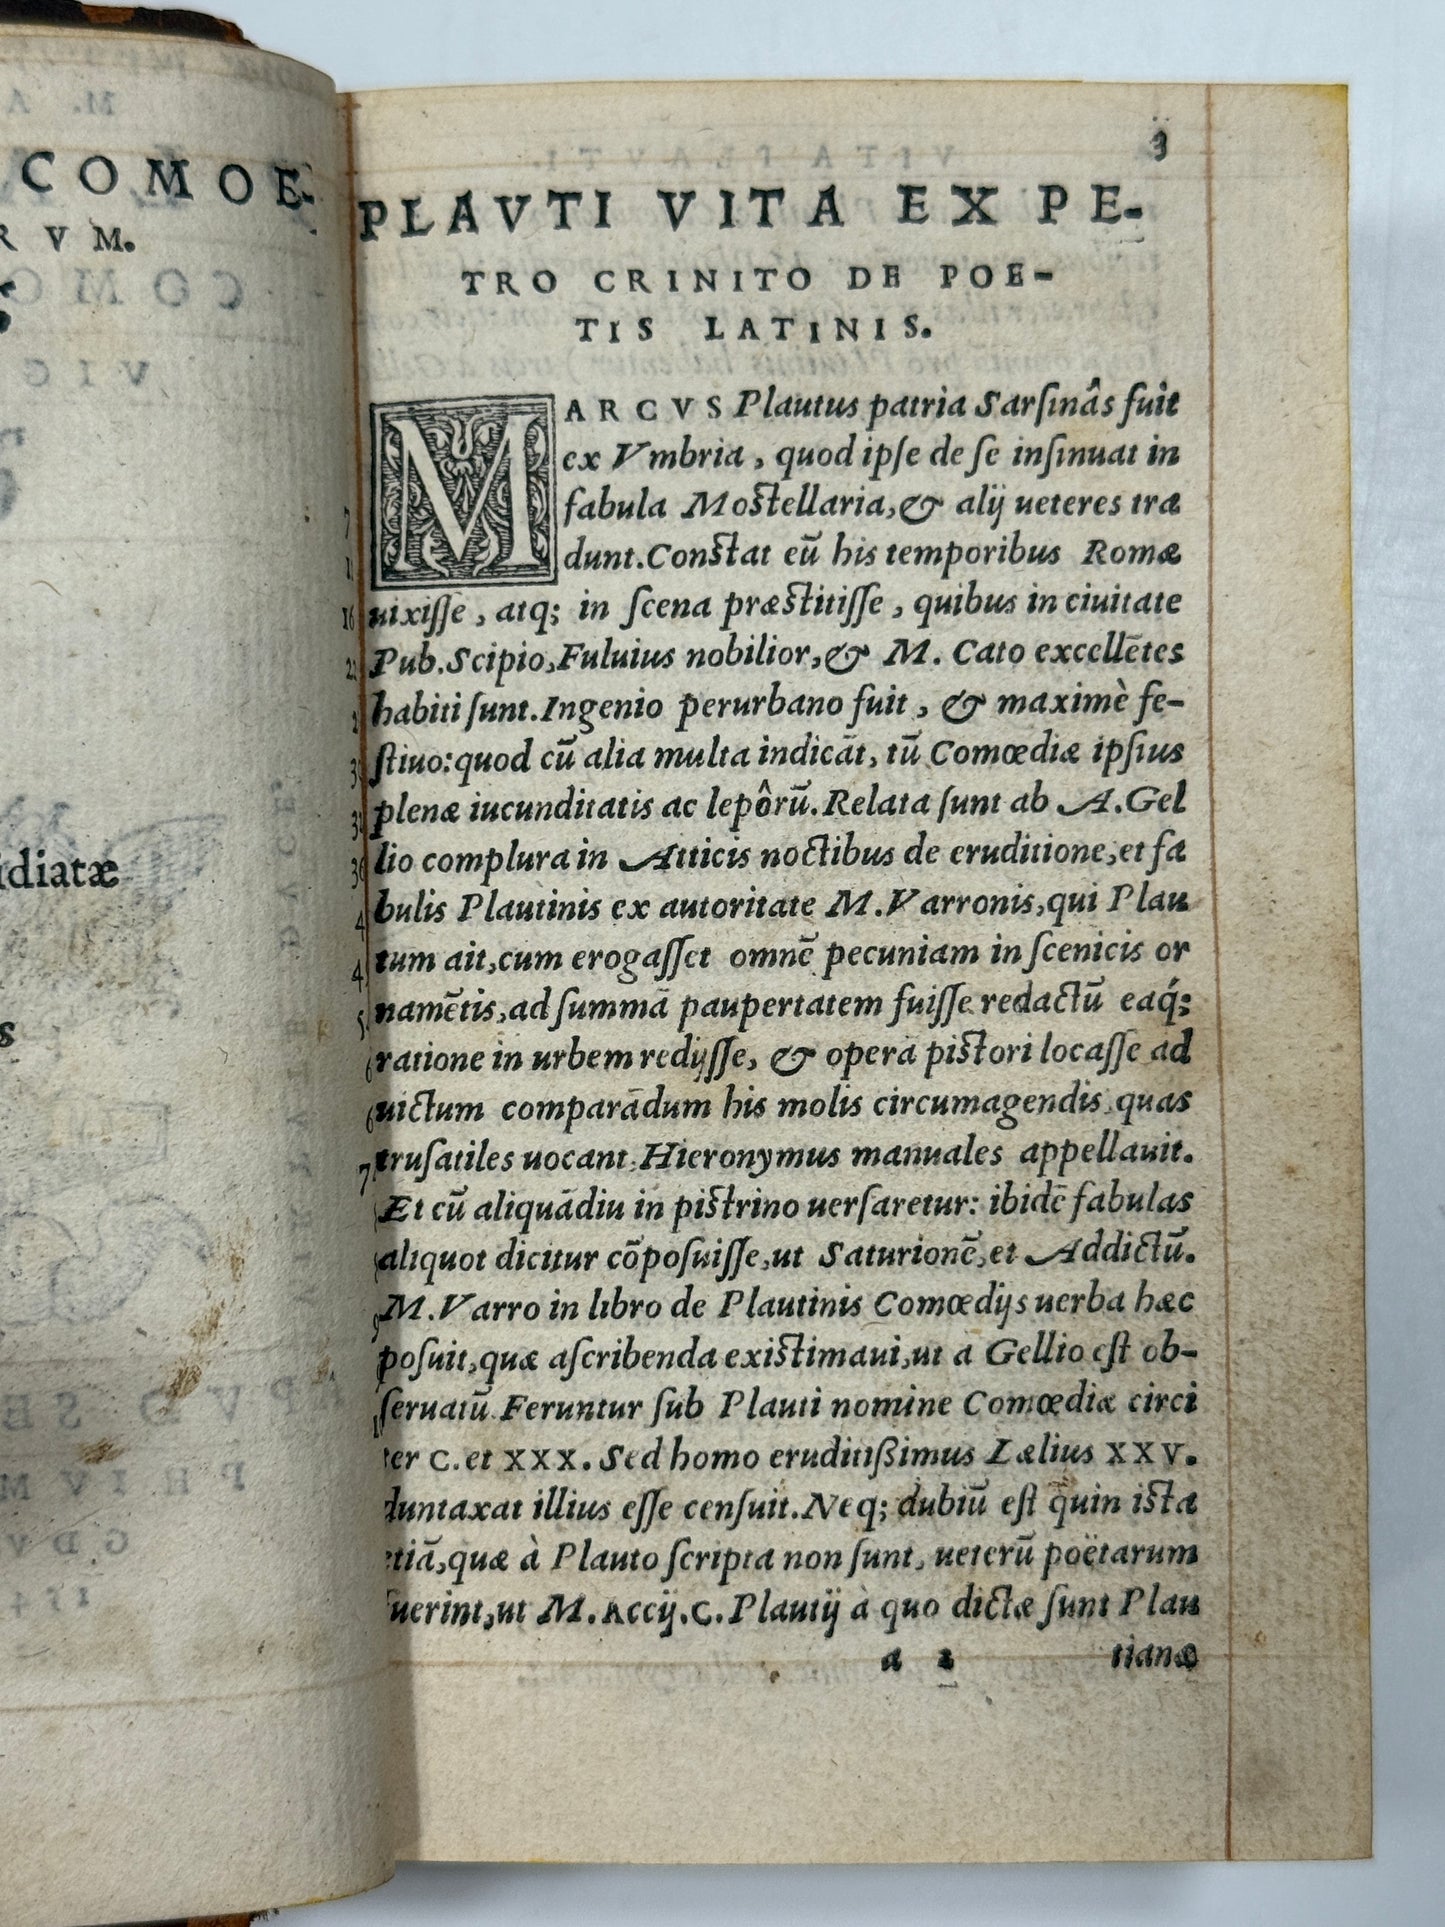 COMOE-
RVM.
idiatæ
3
PLAVTI VITA EX PE-
TRO CRINITO DE POE-
TIS LATINIS.
MARCVS Plautus patria Sarſinâs fuit
ex Vmbria, quod ipſe de ſe inſinuat in
fabula Moſtellaria, & alij ueteres tra
dunt. Conſtat eū his temporibus Romæ
uixiſſe, atq; in ſcena præſtitiſſe, quibus in ciuitate
Pub. Scipio, Fuluius nobilior, & M. Cato excellētes
habiti ſunt. Ingenio perurbano fuit, & maximè fe-
ſtiuo: quod cū alia multa indicāt, tū Comœdiæ ipſius
plenæ iucunditatis ac lepôrū. Relata ſunt ab A. Gel
lio complura in Atticis noctibus de eruditione, et fa
bulis Plautinis ex autoritate M. Varronis, qui Plau
tum ait, cum erogaſſet omnē pecuniam in ſcenicis or
namētis, ad ſummā paupertatem fuiſſe redactū eaq́;
ratione in urbem redijſſe, & opera piſtori locaſſe ad
uictum comparādum his molis circumagendis, quas
truſatiles uocant. Hieronymus manuales appellauit.
Et cū aliquādiu in piſtrino uerſaretur: ibidē fabulas
aliquot dicitur cōpoſuiſſe, ut Saturionē, et Addictū.
M. Varro in libro de Plautinis Comœdijs uerba hæc
poſuit, quæ aſcribenda exiſtimaui, ut a Gellio eſt ob-
ſeruatū. Feruntur ſub Plauti nomine Comœdiæ circi
ter C. et XXX. Sed homo eruditißimus Lælius XXV.
duntaxat illius eſſe cenſuit. Neq; dubiū eſt quin iſta
etiā, quæ à Plauto ſcripta non ſunt, ueterū poëtarum
fuerint, ut M. Accij. C. Plautij à quo dictæ ſunt Plau
a 2 tianæ